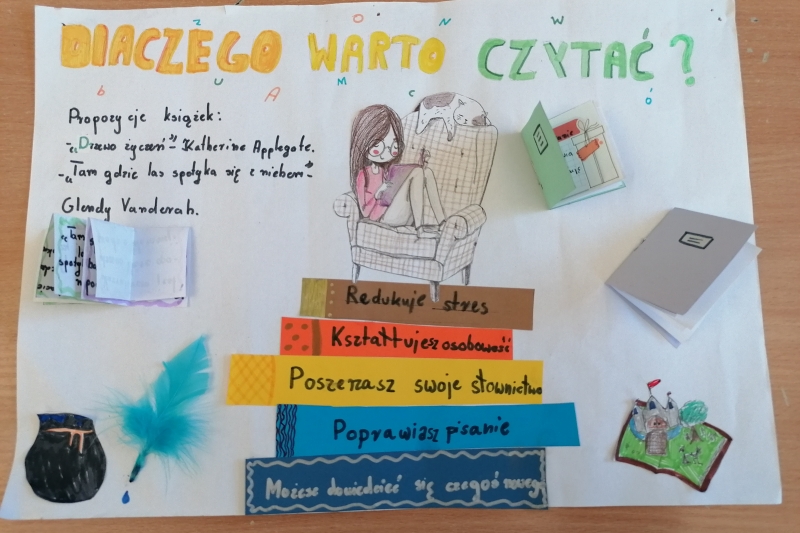 DLACZEGO WARTO CZYTAĆ?
Propozycje książek:
-„Drzewo życzeń"- Katherine Applegate.
-„Tam gdzie las spotyka się z niebem"-
Glendy Vanderah.
Redukuje stres
Kształtujesz osobowość
Poszerzasz swoje słownictwo
Poprawiasz pisanie
Możesz dowiedzieć się czegoś nowego